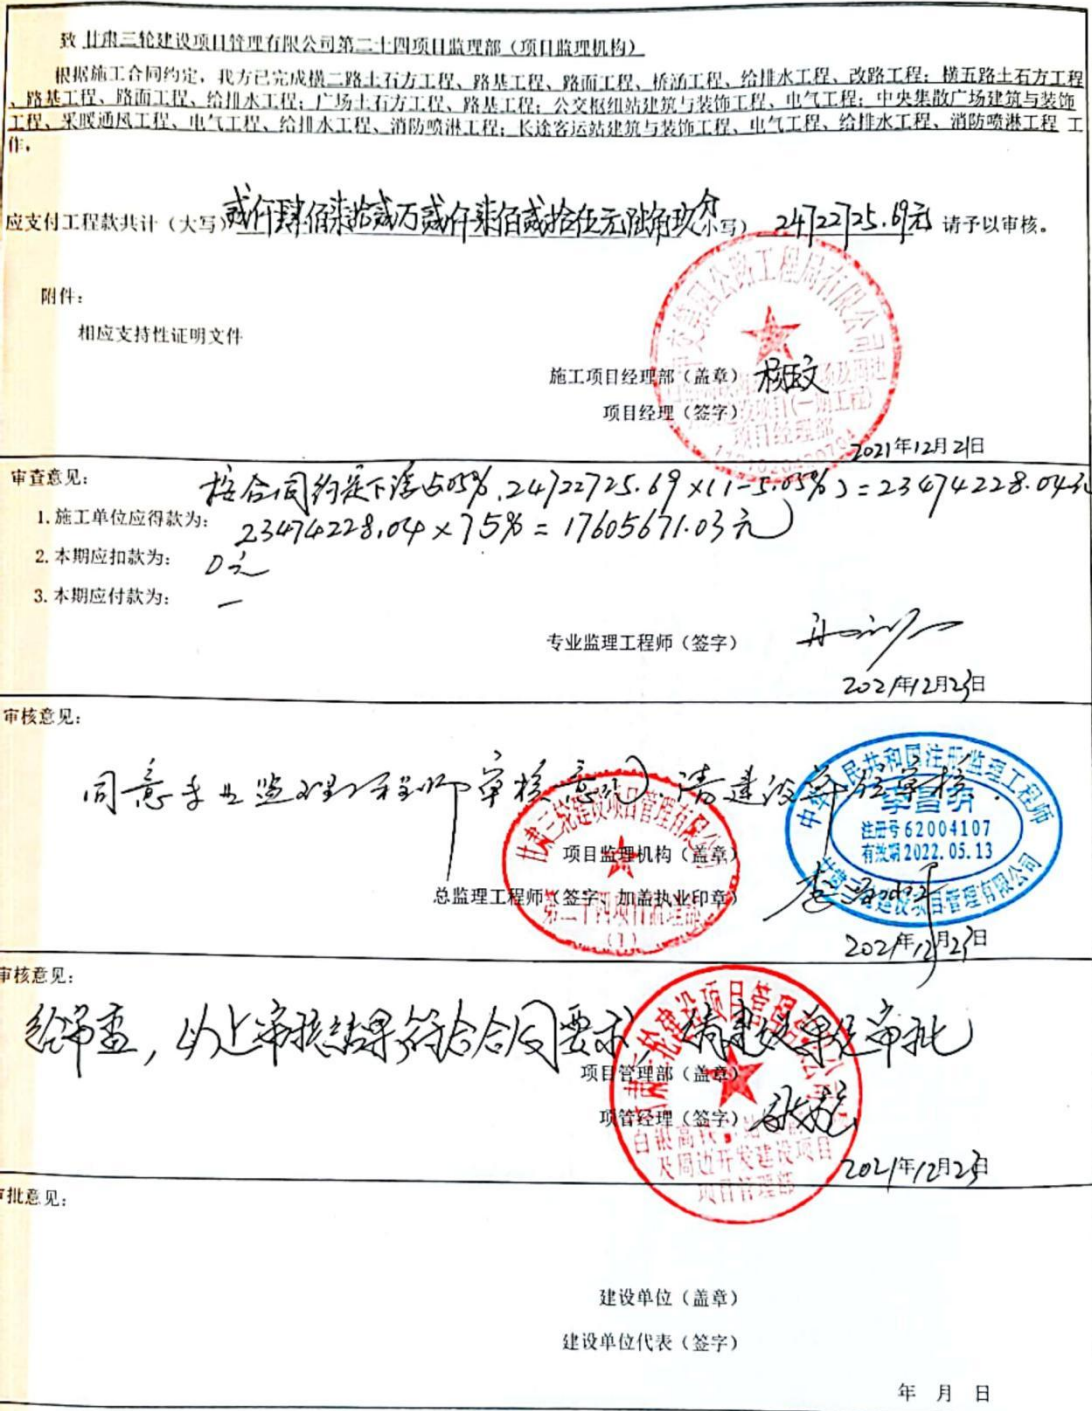 致 甘肃三轮建设项目管理有限公司第二十四项目监理部（项目监理机构）
根据施工合同约定，我方已完成横二路土石方工程、路基工程、路面工程、桥涵工程、给排水工程、改路工程；横五路土石方工程
、路基工程、路面工程、给排水工程；广场土石方工程、路基工程；公交枢纽站建筑与装饰工程、电气工程；中央集散广场建筑与装饰
工程、采暖通风工程、电气工程、给排水工程、消防喷淋工程；长途客运站建筑与装饰工程、电气工程、给排水工程、消防喷淋工程 工
作，
应支付工程款共计（大写）贰仟肆佰柒拾贰万贰仟柒佰贰拾伍元陆角玖分 小写） 24722725.69元 请予以审核。
附件：
相应支持性证明文件
施工项目经理部（盖章）
项目经理（签字）
项目经理部
2021年12月21日
审查意见：
按合同约定下浮5.05%，24722725.69×(1-5.05%)=23474228.04元
1. 施工单位应得款为：
23474228.04×75%=17605671.03元
2. 本期应扣款为： 0元
3. 本期应付款为： 一
专业监理工程师（签字）
2021年12月23日
审核意见：
同意专业监理工程师审核意见，请建设单位审核。
中华人民共和国注册监理工程师
注册号62004107
有效期2022.05.13
甘肃三轮建设项目管理有限公司
甘肃三轮建设项目管理有限公司
第二十四项目监理部
（1）
项目监理机构（盖章）
总监理工程师（签字、加盖执业印章）
2021年12月23日
审核意见：
经审查，以上审核结果符合合同要求，请建设单位审批
甘肃三轮建设项目管理有限公司
项目管理部（盖章）
项管经理（签字）
及周边开发建设项目
项目管理部
2021年12月23日
审批意见：
建设单位（盖章）
建设单位代表（签字）
年 月 日